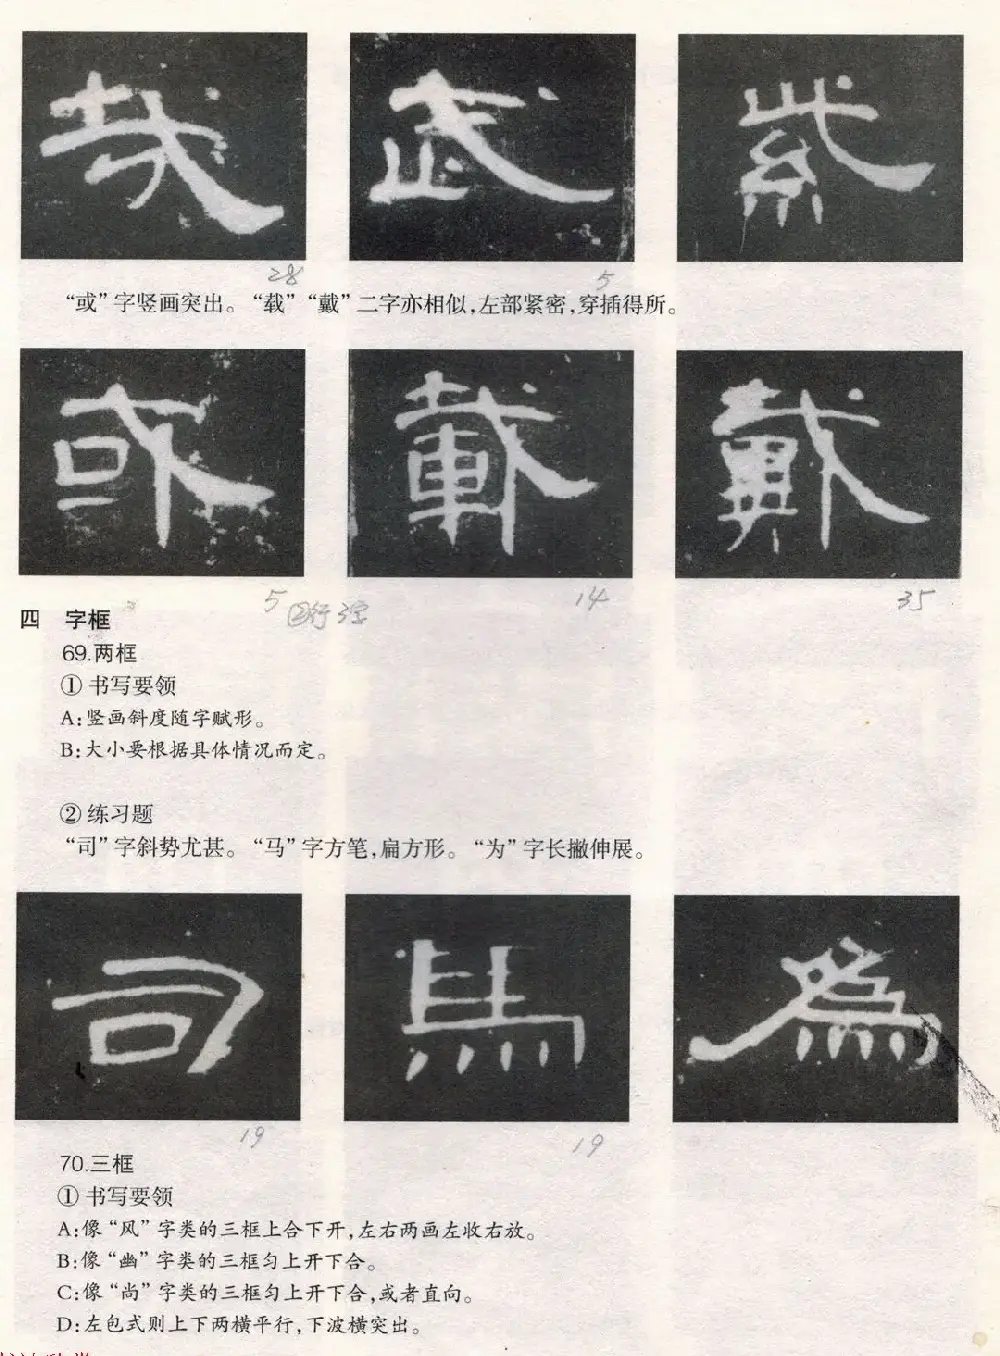 哉 武 紫
28 5
“或”字竖画突出。“载”“戴”二字亦相似,左部紧密,穿插得所。
或 載 戴
5 ②行3字 14 35
四 字框
69.两框
① 书写要领
A:竖画斜度随字赋形。
B:大小要根据具体情况而定。
② 练习题
“司”字斜势尤甚。“马”字方笔,扁方形。“为”字长撇伸展。
司 馬 為
19 19
70.三框
① 书写要领
A:像“风”字类的三框上合下开,左右两画左收右放。
B:像“幽”字类的三框匀上开下合。
C:像“尚”字类的三框匀上开下合,或者直向。
D:左包式则上下两横平行,下波横突出。